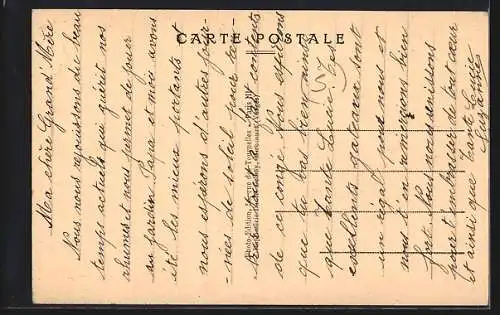 CARTE POSTALE
Ma chère Grand'Mère
Nous nous réjouissons du beau
temps actuel qui guérit nos
rhumes et nous permet de jouer
au jardin. Papa et moi avons
été les mieux portants
nous espérons d'autres jour-
nées de soleil pour
contents
de ce congé. Nous espérons
que tu vas bien ainsi
que tante Lucie. Tes
excellents gateaux sont
un régal pour nous et
nous t'en remercions bien
fort. Nous nous unissons
pour t'embrasser de tout cœur
et ainsi que Tante Lucie
Suzanne
57
Photo-Edition